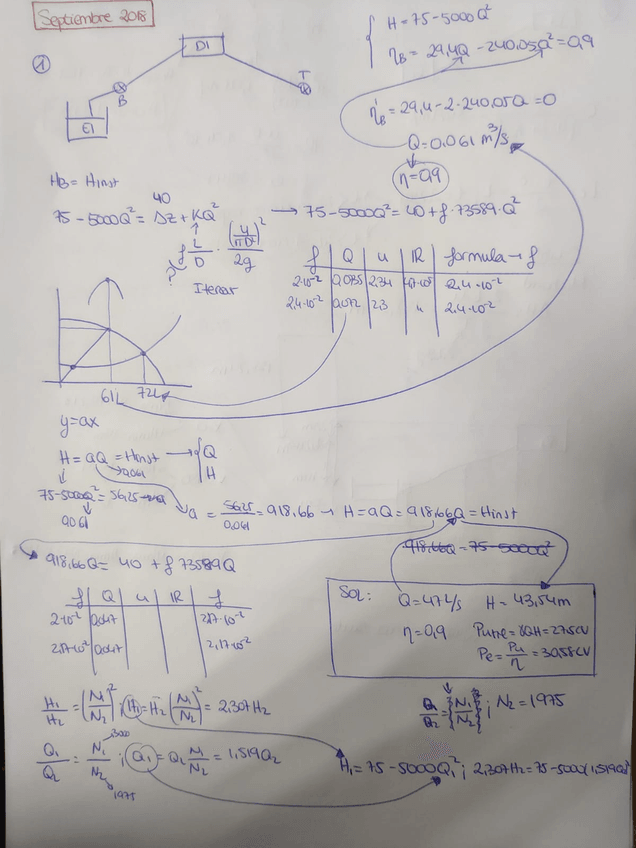 Septiembre 2018
1
D1
T
B
E1
H = 75 - 5000Q²
η_B = 29,4Q - 240,05Q² = 0,9
η'_B = 29,4 - 2·240,05Q = 0
Q = 0,061 m³/s
η = 0,9
H_B = H inst
40
75 - 5000Q² = ΔZ + KQ² → 75 - 5000Q² = 40 + f·73589·Q²
f L/D · (4/πD²)²/2g
?
Iterar
f | Q | u | IR | formula → f
2·10⁻² | 0,085 | 2,34 | | 2.4·10⁻²
2,4·10⁻² | 0,072 | 2,3 | " | 2.4·10⁻²
61L 72L
y = ax
H = aQ = Hinst → { Q
H
0,061
75 - 5000Q² = 56,25
0,061
a = 56,25/0,061 = 918,66 → H = aQ = 918,66Q = Hinst
918,66Q = 75 - 5000Q²
918,66Q = 40 + f 73589Q
f | Q | u | IR | f
2·10⁻² | 0,047 | | | 2,17·10⁻²
2,17·10⁻² | 0,047 | | | 2,17·10⁻²
SOL: Q = 47 L/s H = 43,54m
η = 0,9 Putil = γQH = 27,5CV
Pe = Pu/η = 30,58CV
H₁/H₂ = (N₁/N₂)² ; H₁ = H₂ (N₁/N₂)² = 2,307H₂
Q/Q₂ = {N₁/N₂} ; N₂ = 1975
Q₁/Q₂ = N₁/N₂ ; Q₁ = Q₁ N₁/N₂ = 1,519Q₂
1975
H₁ = 75 - 5000Q₁² ; 2,307H₂ = 75 - 5000(1,519Q₂)²